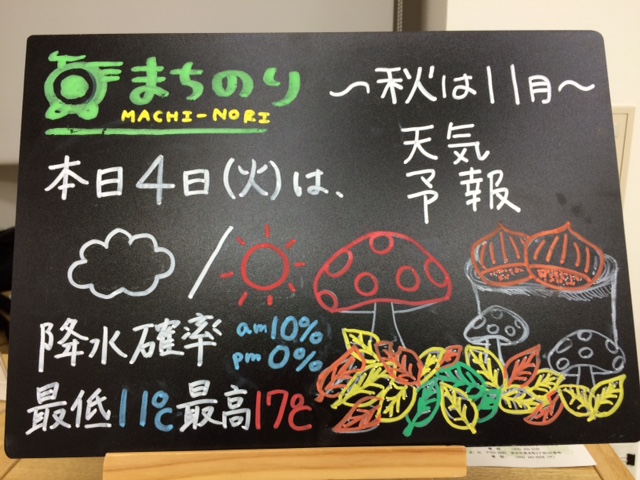 まちのり
MACHI-NORI
〜秋は11月〜
天気
予報
本日4日(火)は、
降水確率 am10%
pm0%
最低11℃最高17℃